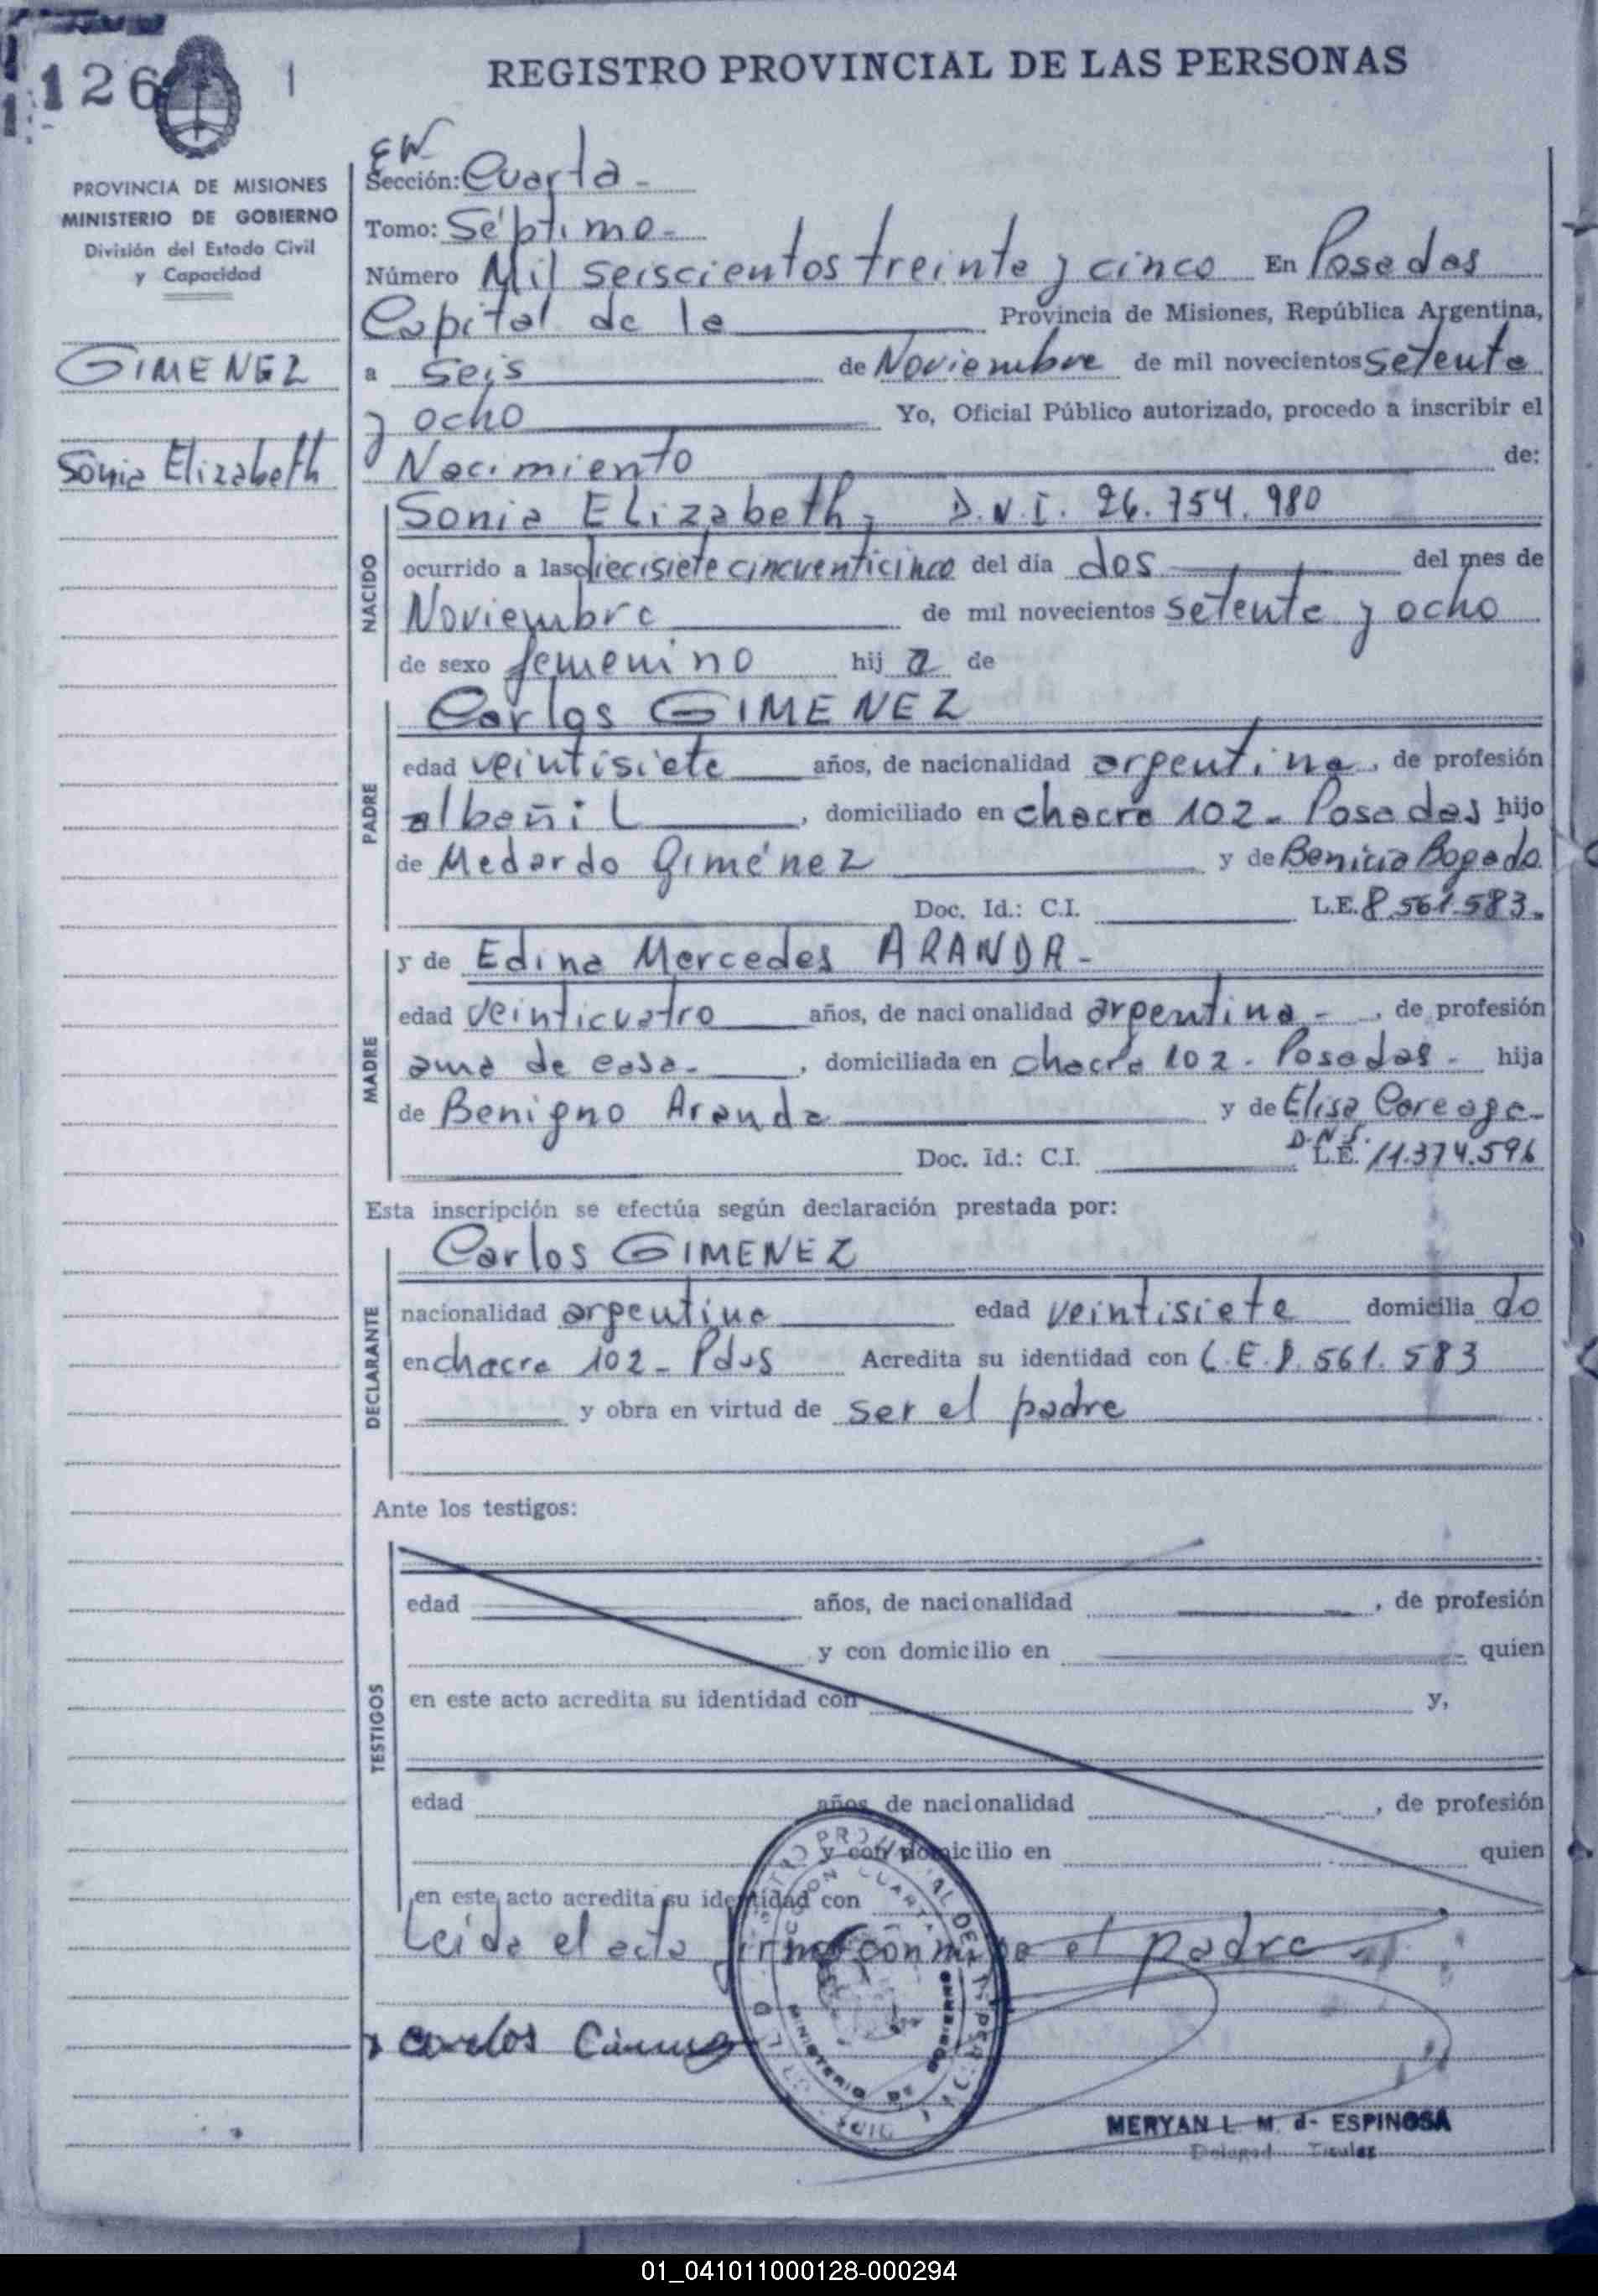 126
REGISTRO PROVINCIAL DE LAS PERSONAS
PROVINCIA DE MISIONES
MINISTERIO DE GOBIERNO
División del Estado Civil
y Capacidad
GIMENEZ
Sonia Elizabeth
Sección: Cuarta -
Tomo: Séptimo -
Número Mil seiscientos treinta y cinco En Posadas
Capital de la Provincia de Misiones, República Argentina,
a seis de Noviembre de mil novecientos setenta
y ocho Yo, Oficial Público autorizado, procedo a inscribir el
Nacimiento de:
NACIDO
Sonia Elizabeth, D.N.I. 26.754.980
ocurrido a las diecisiete cincuenticinco del día dos del mes de
Noviembre de mil novecientos setenta y ocho
de sexo femenino hij a de
PADRE
Carlos GIMENEZ
edad veintisiete años, de nacionalidad argentina, de profesión
albañil, domiciliado en chacra 102 - Posadas hijo
de Medardo Giménez y de Benicia Bogado
Doc. Id.: C.I. L.E. 8.561.583.
MADRE
y de Edina Mercedes ARANDA -
edad veinticuatro años, de nacionalidad argentina -, de profesión
ama de casa -, domiciliada en chacra 102 - Posadas - hija
de Benigno Aranda y de Elisa Careaga -
Doc. Id.: C.I. D.N.I. L.E. 11.374.596
Esta inscripción se efectúa según declaración prestada por:
DECLARANTE
Carlos GIMENEZ
nacionalidad argentina edad veintisiete domicilia do
en chacra 102 - Pdas Acredita su identidad con L.E. 8.561.583
y obra en virtud de ser el padre
Ante los testigos:
TESTIGOS
edad años, de nacionalidad , de profesión
y con domicilio en quien
en este acto acredita su identidad con y,
edad años, de nacionalidad , de profesión
y con domicilio en quien
en este acto acredita su identidad con
Leída el acta firma conmigo el padre -
Carlos
MINISTERIO DE GOBIERNO
SECCION CUARTA
MERYAN L. M. d- ESPINOSA
Delegad Titular
01_041011000128-000294